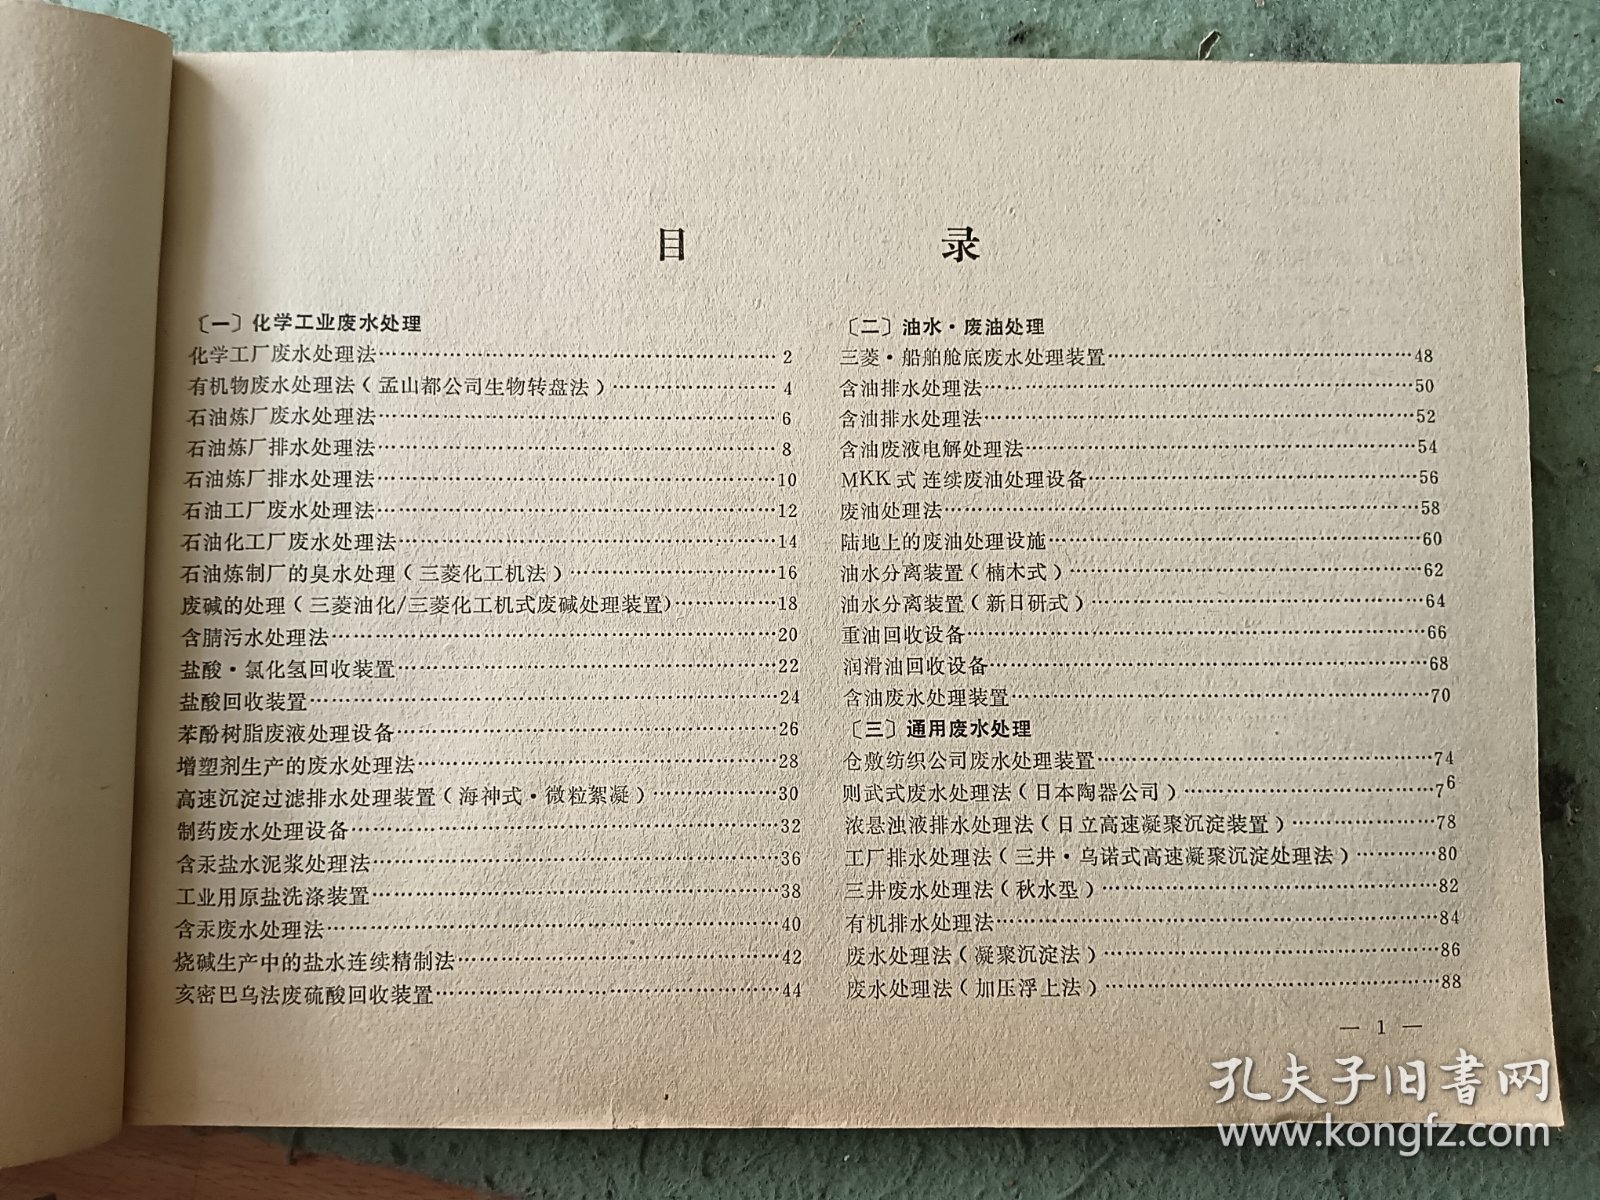 目 录
〔一〕化学工业废水处理
化学工厂废水处理法……2
有机物废水处理法（孟山都公司生物转盘法）……4
石油炼厂废水处理法……6
石油炼厂排水处理法……8
石油炼厂排水处理法……10
石油工厂废水处理法……12
石油化工厂废水处理法……14
石油炼制厂的臭水处理（三菱化工机法）……16
废碱的处理（三菱油化/三菱化工机式废碱处理装置）……18
含腈污水处理法……20
盐酸·氯化氢回收装置……22
盐酸回收装置……24
苯酚树脂废液处理设备……26
增塑剂生产的废水处理法……28
高速沉淀过滤排水处理装置（海神式·微粒絮凝）……30
制药废水处理设备……32
含汞盐水泥浆处理法……36
工业用原盐洗涤装置……38
含汞废水处理法……40
烧碱生产中的盐水连续精制法……42
亥密巴乌法废硫酸回收装置……44
〔二〕油水·废油处理
三菱·船舶舱底废水处理装置……48
含油排水处理法……50
含油排水处理法……52
含油废液电解处理法……54
MKK式 连续废油处理设备……56
废油处理法……58
陆地上的废油处理设施……60
油水分离装置（楠木式）……62
油水分离装置（新日研式）……64
重油回收设备……66
润滑油回收设备……68
含油废水处理装置……70
〔三〕通用废水处理
仓敷纺织公司废水处理装置……74
则武式废水处理法（日本陶器公司）……76
浓悬浊液排水处理法（日立高速凝聚沉淀装置）……78
工厂排水处理法（三井·乌诺式高速凝聚沉淀处理法）……80
三井废水处理法（秋水型）……82
有机排水处理法……84
废水处理法（凝聚沉淀法）……86
废水处理法（加压浮上法）……88
— 1 —
孔夫子旧书网
www.kongfz.com